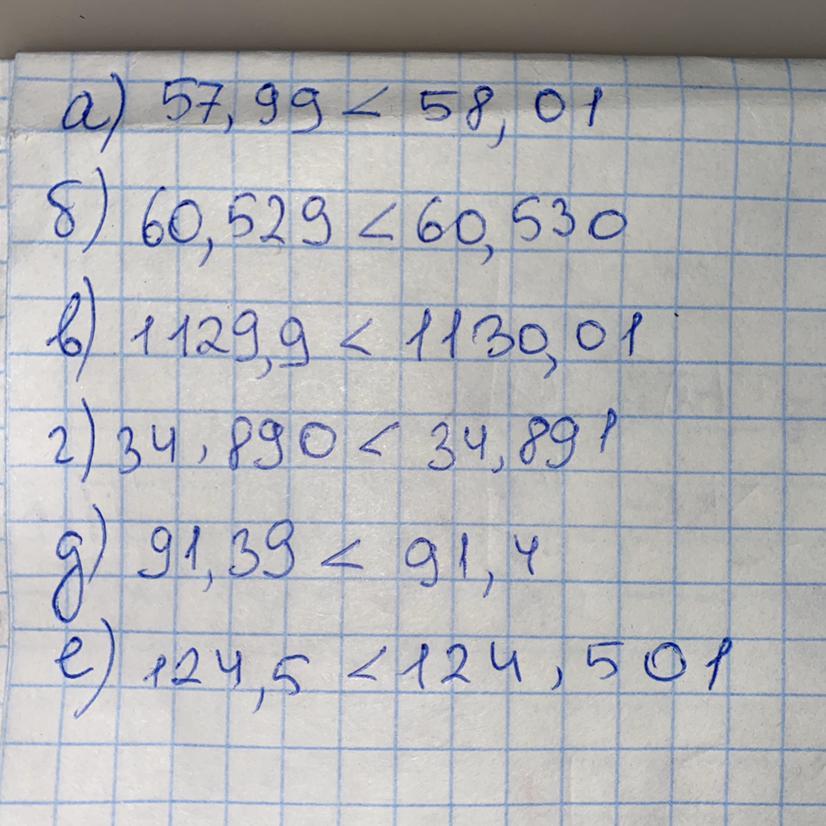 а) 57,99 < 58,01
б) 60,529 < 60,530
в) 1129,9 < 1130,01
г) 34,890 < 34,891
д) 91,39 < 91,4
е) 124,5 < 124,501